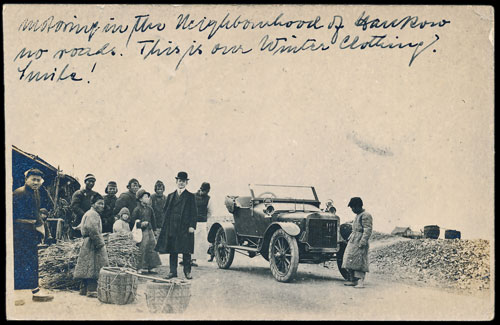 motoring in the Neighbourhood of Hankow
no roads. This is our Winter Clothing.
Smile!